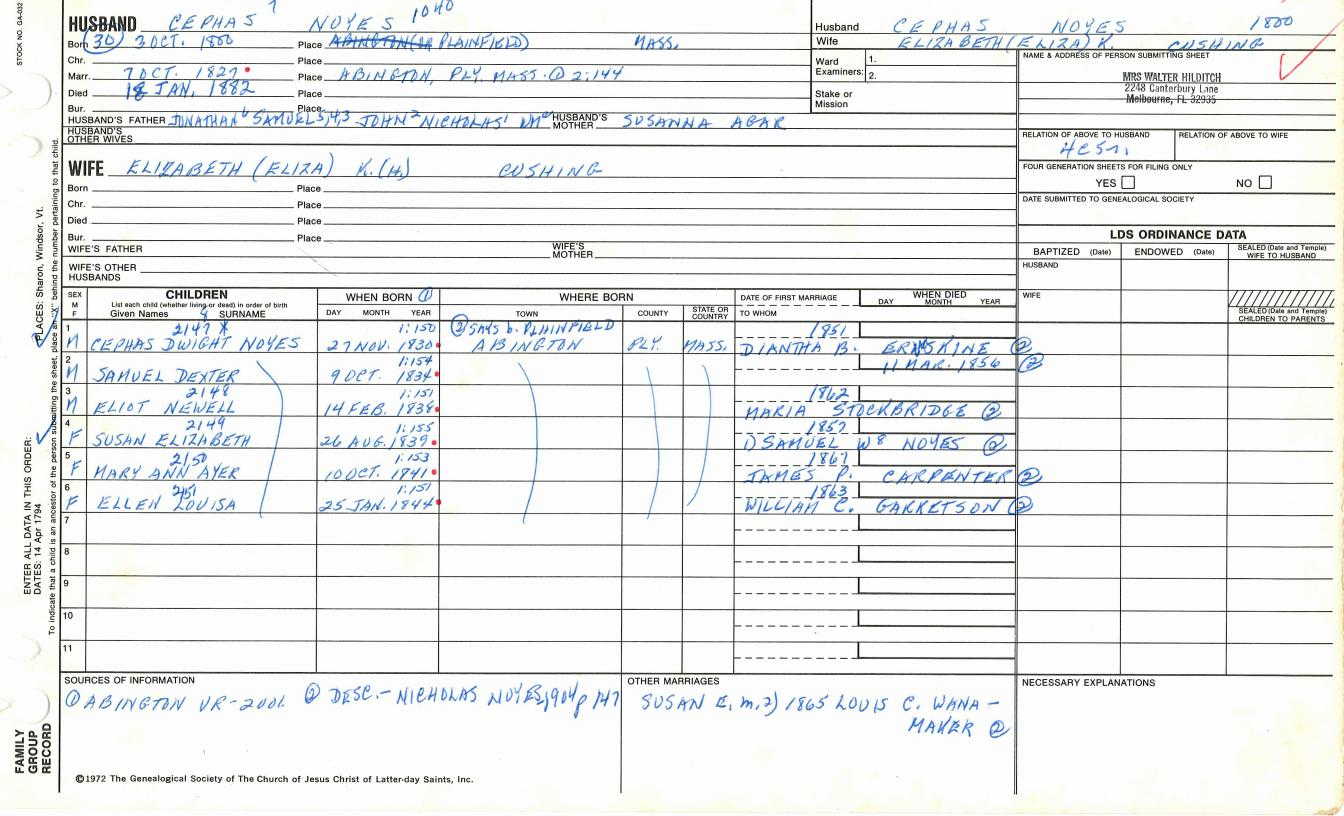 STOCK NO. GA-032
HUSBAND CEPHAS 7 NOYES 1040
Born 30 3 OCT. 1800 Place ABINGTON (OR PLAINFIELD) MASS.
Chr. Place
Marr. 7 OCT. 1827 Place ABINGTON, PLY. MASS. ② 2:144
Died 18 JAN. 1882 Place
Bur. Place
HUSBAND'S FATHER JONATHAN 6 SAMUEL 5,4,3 JOHN 2 NICHOLAS 1 HUSBAND'S MOTHER SUSANNA AGAR
HUSBAND'S OTHER WIVES
WIFE ELIZABETH (ELIZA) K. (H.) CUSHING
Born Place
Chr. Place
Died Place
Bur. Place
WIFE'S FATHER WIFE'S MOTHER
WIFE'S OTHER HUSBANDS
Husband CEPHAS NOYES 1800
Wife ELIZABETH (ELIZA) K. CUSHING
Ward Examiners: 1.
2.
Stake or Mission
NAME & ADDRESS OF PERSON SUBMITTING SHEET
MRS WALTER HILDITCH
2248 Canterbury Lane
Melbourne, FL 32935
RELATION OF ABOVE TO HUSBAND RELATION OF ABOVE TO WIFE
FOUR GENERATION SHEETS FOR FILING ONLY
YES NO
DATE SUBMITTED TO GENEALOGICAL SOCIETY
LDS ORDINANCE DATA
BAPTIZED (Date) ENDOWED (Date) SEALED (Date and Temple) WIFE TO HUSBAND
HUSBAND
WIFE
SEALED (Date and Temple) CHILDREN TO PARENTS
SEX M F
CHILDREN
List each child (whether living or dead) in order of birth
Given Names 8 SURNAME
WHEN BORN ①
DAY MONTH YEAR
WHERE BORN
TOWN COUNTY STATE OR COUNTRY
DATE OF FIRST MARRIAGE
TO WHOM
WHEN DIED
DAY MONTH YEAR
1 2147 X 1:150 ② SAYS b. PLAINFIELD 1851
M CEPHAS DWIGHT NOYES 27 NOV. 1830 ABINGTON PLY. MASS. DIANTHA B. ERNSKINE ②
2 1:154
M SAMUEL DEXTER 9 OCT. 1834 11 MAR. 1856 ②
3 2148 1:151 1862
M ELIOT NEWELL 14 FEB. 1838 MARIA STOCKBRIDGE ②
4 2149 1:155 1857
F SUSAN ELIZABETH 26 AUG. 1839 1) SAMUEL W 8 NOYES ②
5 2150 1:153 1867
F MARY ANN AYER 10 OCT. 1841 JAMES P. CARPENTER ②
6 2151 1:151 1863
F ELLEN LOUISA 25 JAN. 1844 WILLIAM C. GARRETSON ②
7
8
9
10
11
SOURCES OF INFORMATION
① ABINGTON VR - 2 VOL ② DESC. - NICHOLAS NOYES, 1904 p 147
OTHER MARRIAGES
SUSAN E. m. 2) 1865 LOUIS C. WANA-
MAKER ②
NECESSARY EXPLANATIONS
©1972 The Genealogical Society of The Church of Jesus Christ of Latter-day Saints, Inc.
FAMILY GROUP RECORD
ENTER ALL DATA IN THIS ORDER:
DATES: 14 Apr 1794
PLACES: Sharon, Windsor, Vt.
To indicate that a child is an ancestor of the person submitting the sheet, place an "X" behind the number pertaining to that child.